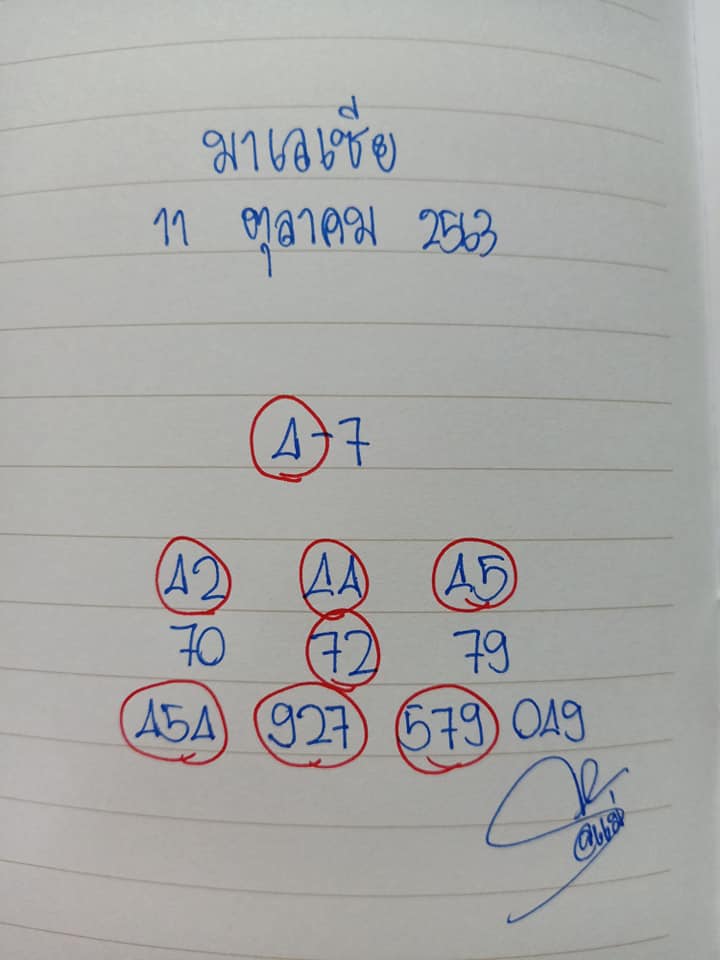 มาเลเซีย
11 ตุลาคม 2563
4-7
42 44 45
70 72 79
454 927 579 049